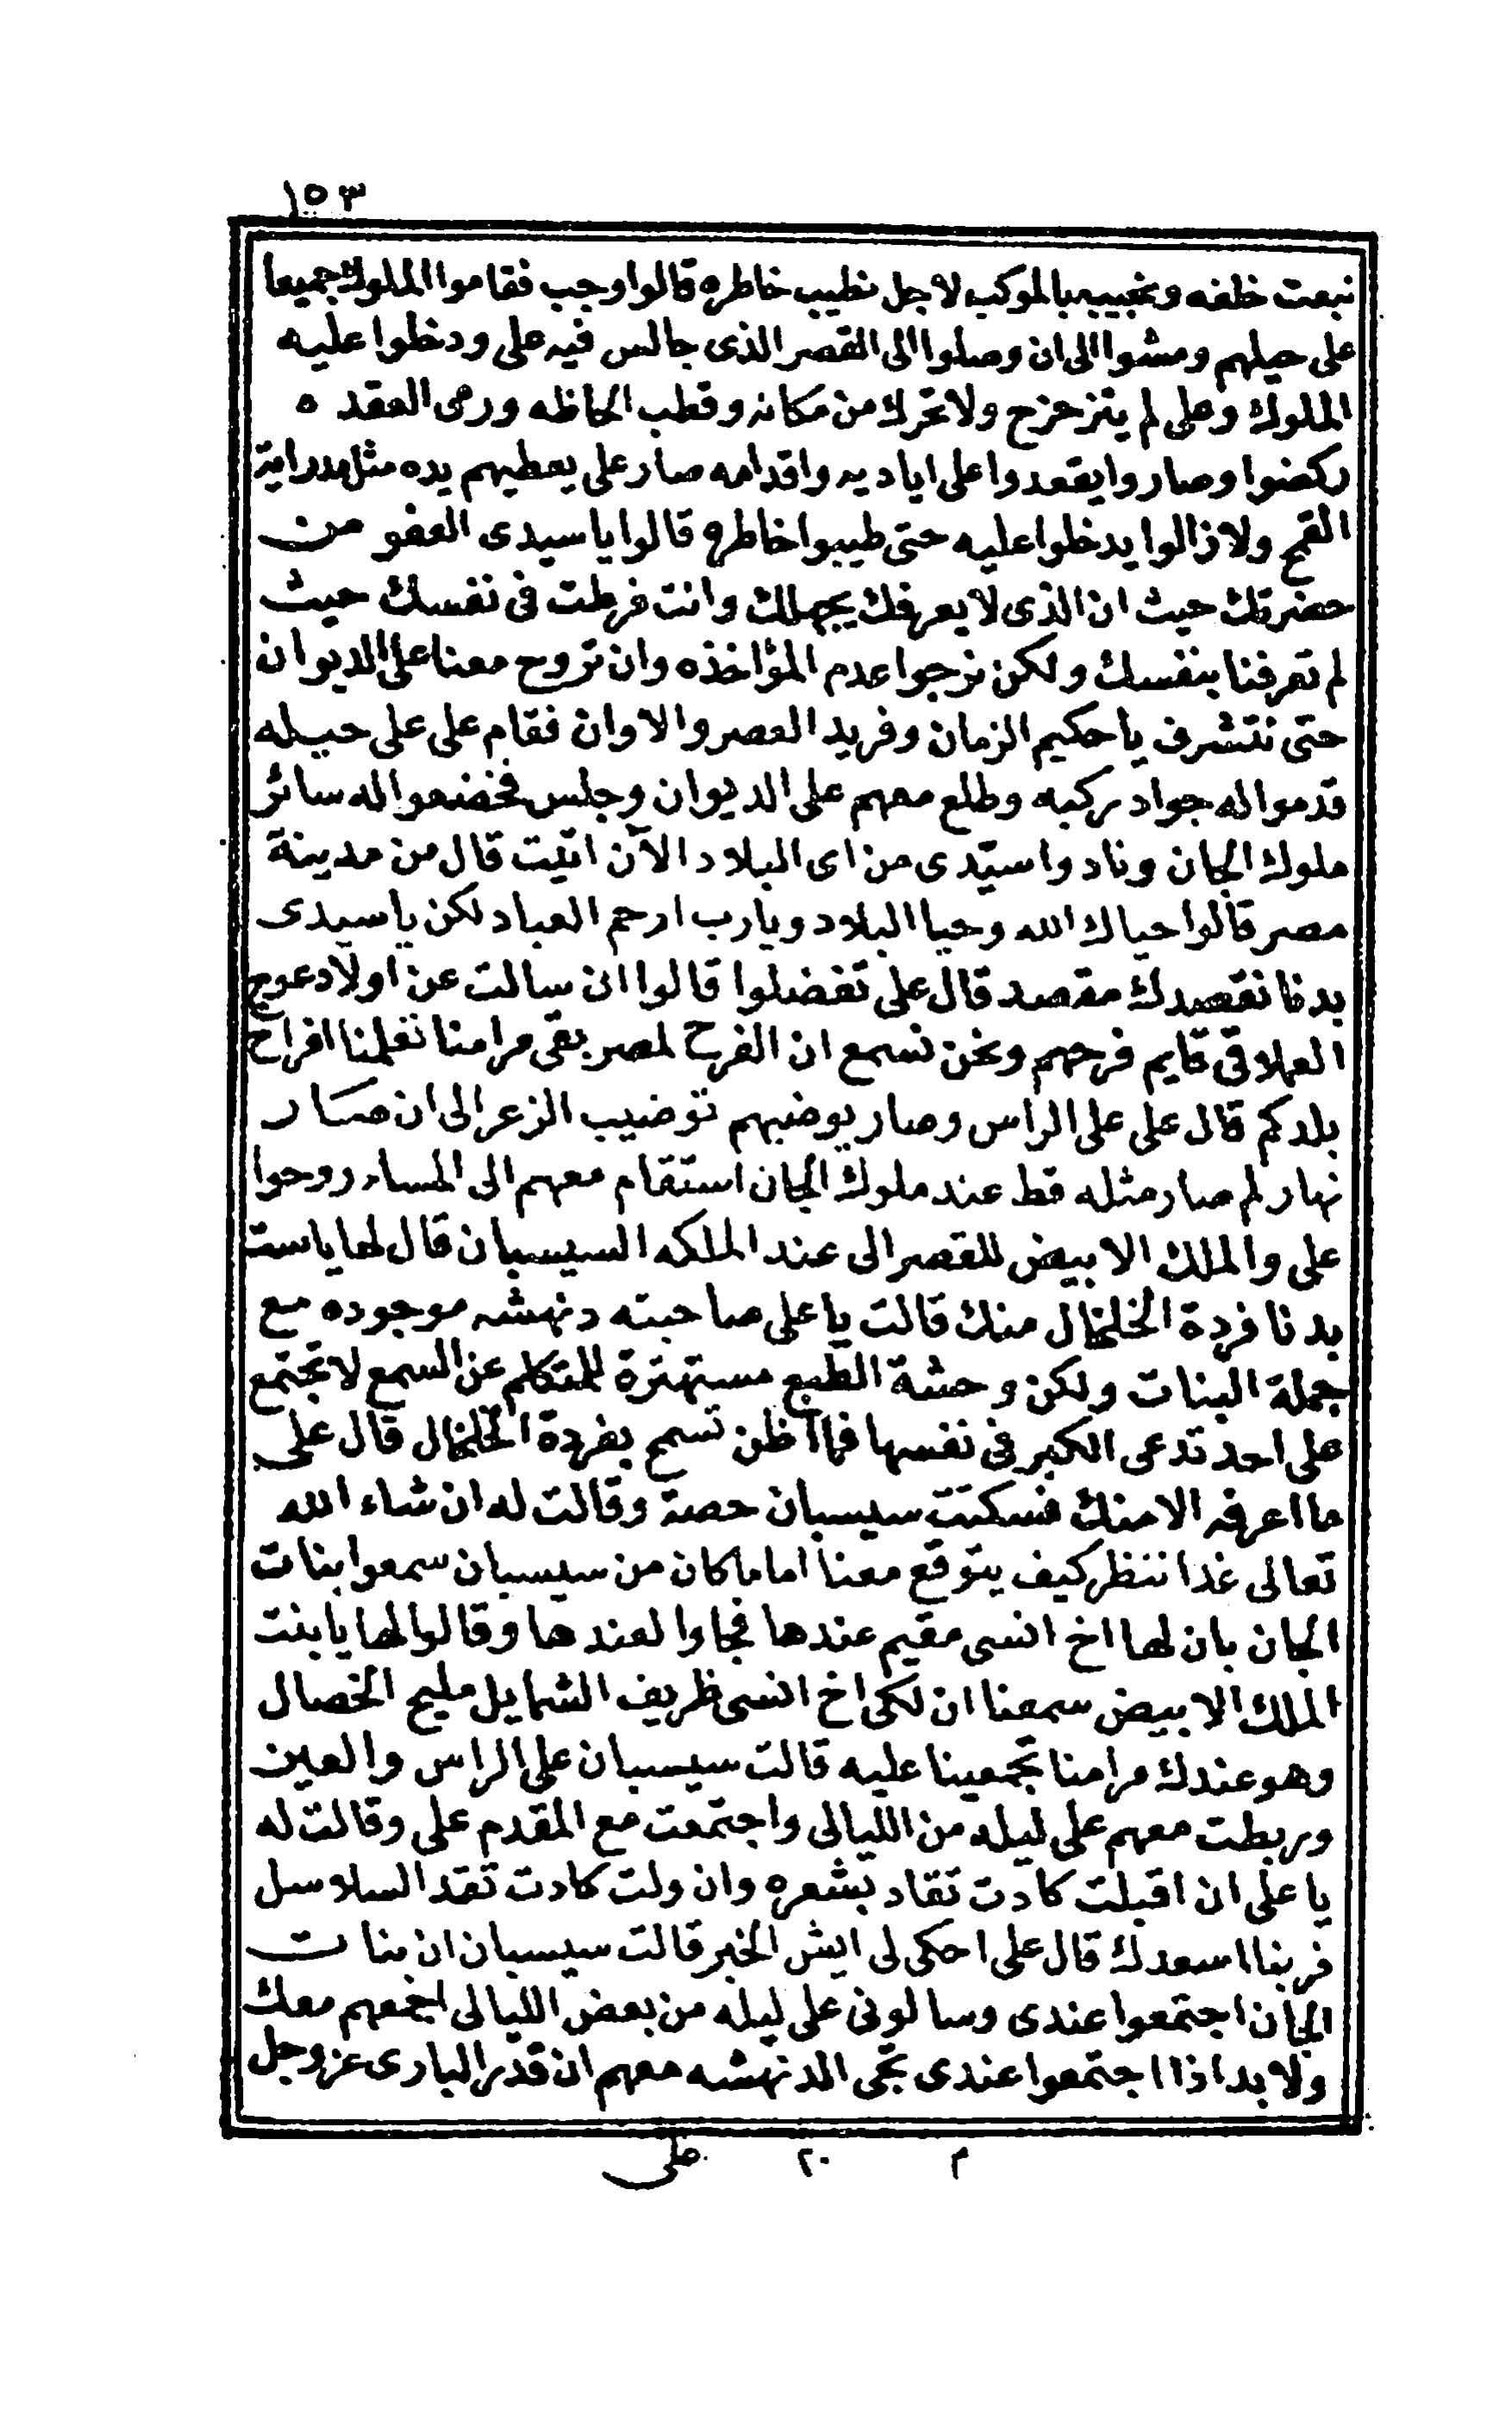 ١٥٣
نبعت خلفه ونجيبه بالموكب لاجل نطيب خاطره قالوا وجب فقاموا الملوك جميعا
على حيلهم ومشوا الى ان وصلوا الى القصر الذى جالس فيه على ودخلوا عليه
الملوك وعلى لم يتزحزح ولا تحرك من مكانه وقطب الحاظه ورمى العقد ه
ركضوا وصاروا يقعدوا على اياديه واقدامه صار على يعطيهم يده مثل مدراية
القمح ولا زالوا يدخلوا عليه حتى طيبوا خاطره قالوا يا سيدى العفو من
حضرتك حيث ان الذى لا يعرفك يجهلك وانت فرطت فى نفسك حيث
لم تعرفنا بنفسك ولكن نرجوا عدم المؤاخذه وان تروح معنا على الديوان
حتى نتشرف يا حكيم الزمان وفريد العصر والاوان فقام على على حيله
قدموا له جواد ركبه وطلع معهم على الديوان وجلس فخضعوا له سائر
ملوك الجان ونادوا سيّدى من اى البلاد الآن اتيت قال من مدينة
مصر قالوا حياك الله وحيا البلاد ويارب ارحم العباد لكن يا سيدى
بدنا نقصدك مقصد قال على تفضلوا قالوا ان سالت عن اولاد عوج
العملاقى قايم فرحهم ونحن نسمع ان الفرح لمصر بقى مرامنا تفعلنا افراح
بلدكم قال على على الراس وصار يوضبهم توضيب الزعر الى ان صار
نهار لم صار مثله قط عند ملوك الجان استقام معهم الى المساء روحوا
على والملك الابيض للقصر الى عند الملكه السيسبان قال لها ياست
بدنا فردة الخلخال منك قالت يا على صاحبته دنهشه موجوده مع
جملة البنات ولكن وحشة الطبع مستهترة للمتكلم عن السمع لا تجتمع
على احد تدعى الكبر فى نفسها فما اظن تسمح بفردة الخلخال قال على
ما اعرفه الا منك فسكتت سيسبان حصة وقالت له ان شاء الله
تعالى غدا ننظر كيف يتوقع معنا اما ما كان من سيسبان سمعوا بنات
الجان بان لها اخ انسى مقيم عندها فجاوا لعندها وقالوا لها يا بنت
الملك الابيض سمعنا ان لكى اخ انسى ظريف الشمايل مليح الخصال
وهو عندك مرامنا تجمعينا عليه قالت سيسبان على الراس والعين
وربطت معهم على ليله من الليالى واجتمعت مع المقدم على وقالت له
يا على ان اقبلت كادت تقاد بشعره وان ولت كادت تقد السلاسل
فربنا اسعدك قال على احكى لى ايش الخبر قالت سيسبان ان بنات
الجان اجتمعوا عندى وسالونى على ليله من بعض الليالى اجمعهم معك
ولا بد اذا اجتمعوا عندى تجى الدنهشه معهم ان قدر البارى عز وجل
م ٢٠ على